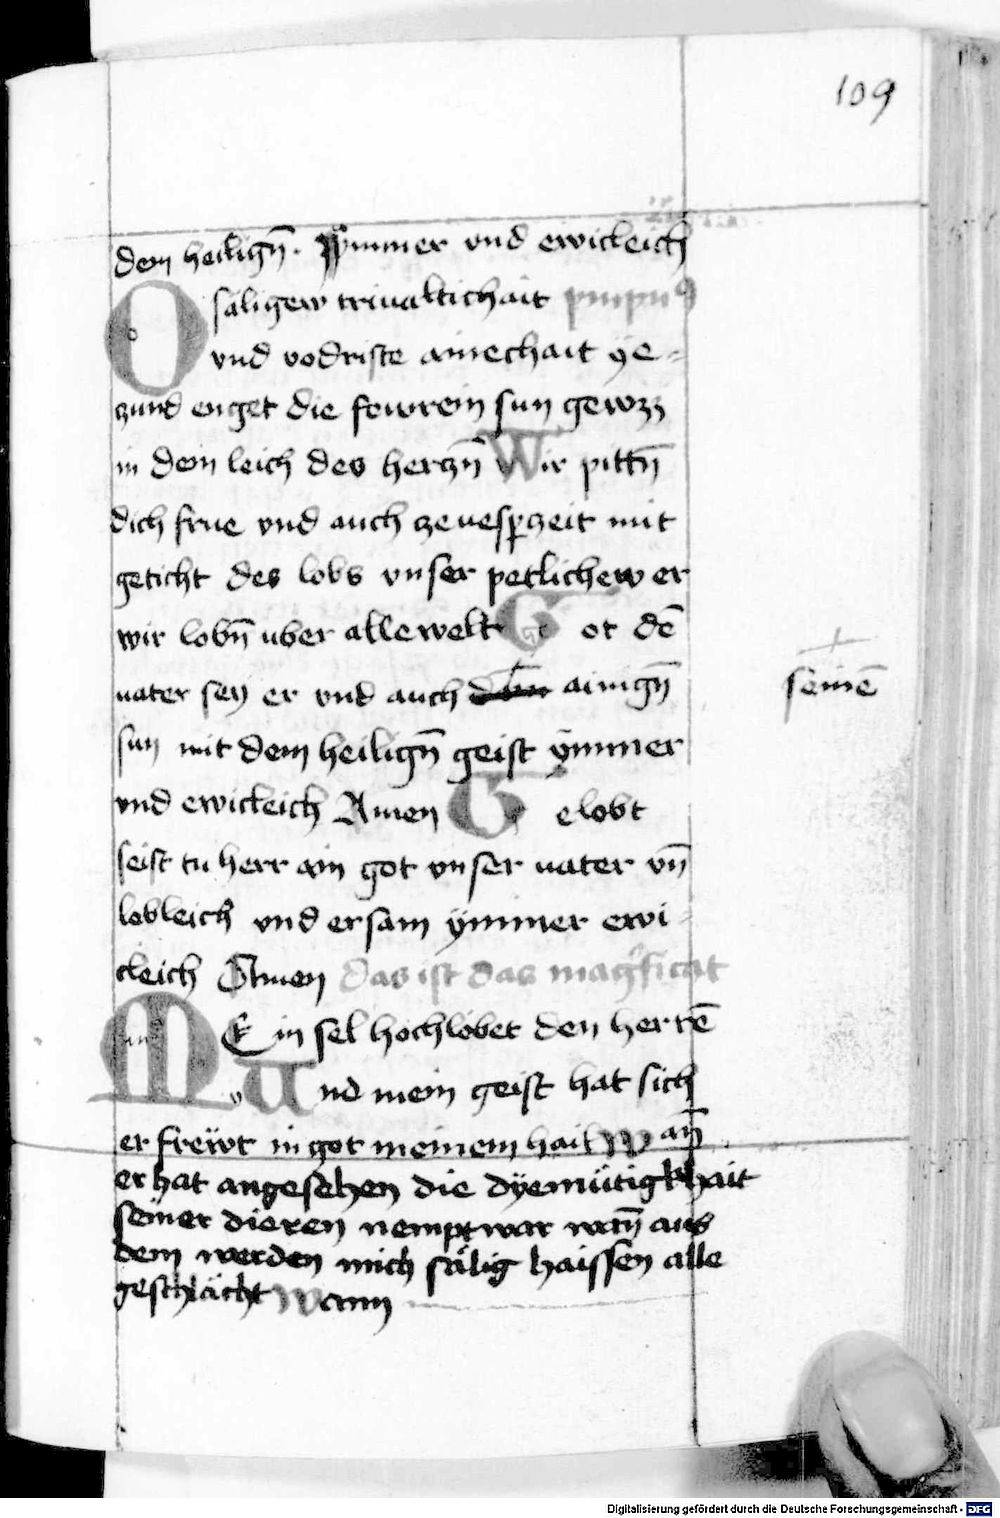 109
dem heilign̄. ymmer vnd ewickleich
O säligew triualtichait ympnus
vnd vodriste ainechait ye-
zund enget die fewrein sun gewzz
in dem leich des herczn̄ Wir pittn̄
dich frue vnd auch ze vesperzeit mit
geticht des lobs vnser petlichew er
wir lobn̄ uber alle welt Got dē
vater sey er vnd auch ainign̄
seinē
sun mit dem heilign̄ geist ÿmmer
vnd ewickleich Amen Gelobt
seist tu herr ain got vnser vater vn̄
lobleich vnd ersam ÿmmer ewi-
cleich Amen das ist das magnificat
MEin sel hochlobet den herrē
Vnd mein geist hat sich
erfrëwt in got meinem hail Wan̄
er hat angesehen die dyemütigkhait
seiner dieren nempt war wan̄ aus
dem werden mich sälig haissen alle
geschlächt Wann
Digitalisierung gefördert durch die Deutsche Forschungsgemeinschaft - DFG